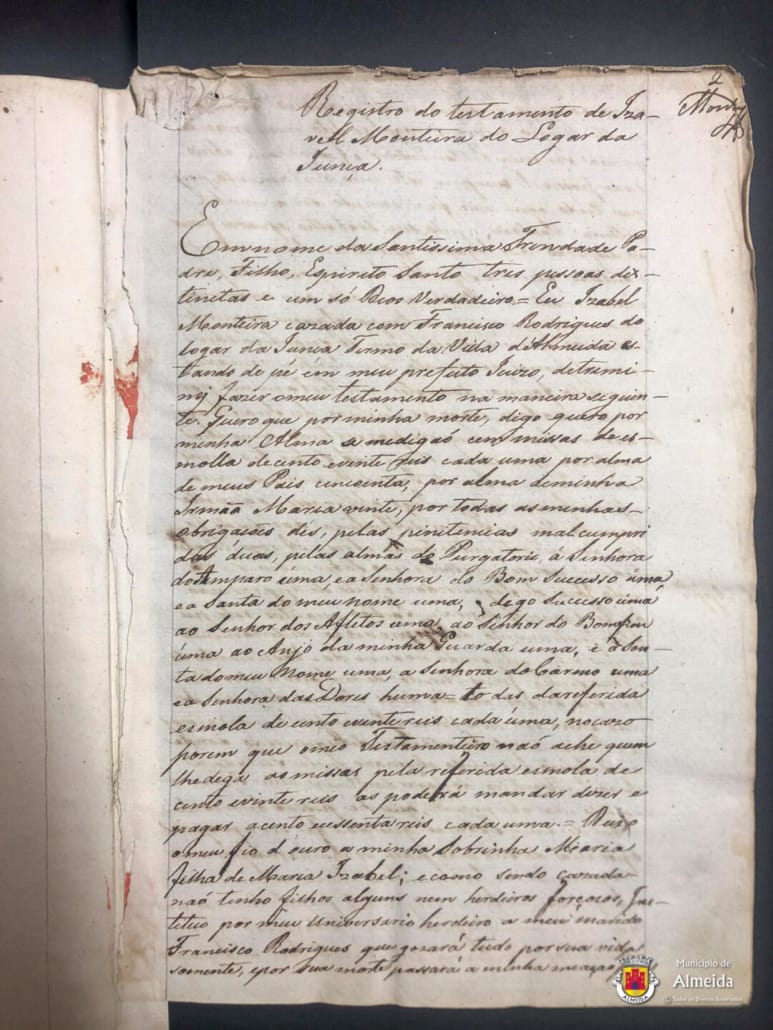 2
Registro do testamento de Iza-
vel Monteira do Logar da
Junça.
Em nome da Santissima Trindade Pa-
dre, Filho, Espirito Santo tres pessoas dis-
tinctas e um só Deos Verdadeiro = Eu Izabel
Monteira cazada com Francisco Rodrigues do
logar da Junça Termo da Villa d'Almeida es-
tando de pé em meu prefeito Juizo, detremi-
nij fazer o meu testamento na maneira seguin-
te. Quero que por minha morte, digo quero por
minha Alma se me digaó cem missas de es-
molla de cento e vinte reis cada uma por alma
de meus Pais cincoenta, por alma de minha
Irmãa Maria vinte, por todas as minhas
obrigacões dés, pelas pinitencias mal cumpri
das duas, pelas almas do Purgatorio, á Senhora
do Amparo uma, e a Senhora do Bom Successo uma
e a Santa do meu nome uma, digo Successo uma
ao Senhor dos Afletos uma, ao Senhor do Bomfim
uma ao Anjo da minha Guarda uma, e a San-
ta do meu Nome uma, a Senhora do Carmo uma
e a Senhora das Dores huma = todas da referida
esmola de cento e vinte reis cada uma, no cazo
porem que o meu Testamenteiro naó ache quem
lhe dega as missas pela referida esmola de
cento e vinte reis as poderá mandar dizer e
pagar a cento e essenta reis cada uma. = Deixo
o meu fio d'ouro a minha Sobrinha Maria
filha de Maria Izabel; e como sendo cazada
naó tenho filhos alguns nem herdeiros forçosos, Ins-
tituo por meu Universario herdeiro a meu marido
Francisco Rodrigues que gozará tudo por sua vida
somente, e por sua morte passará a minha meação
Município de
Almeida
© Todos os Direitos Reservados
ALMEIDA